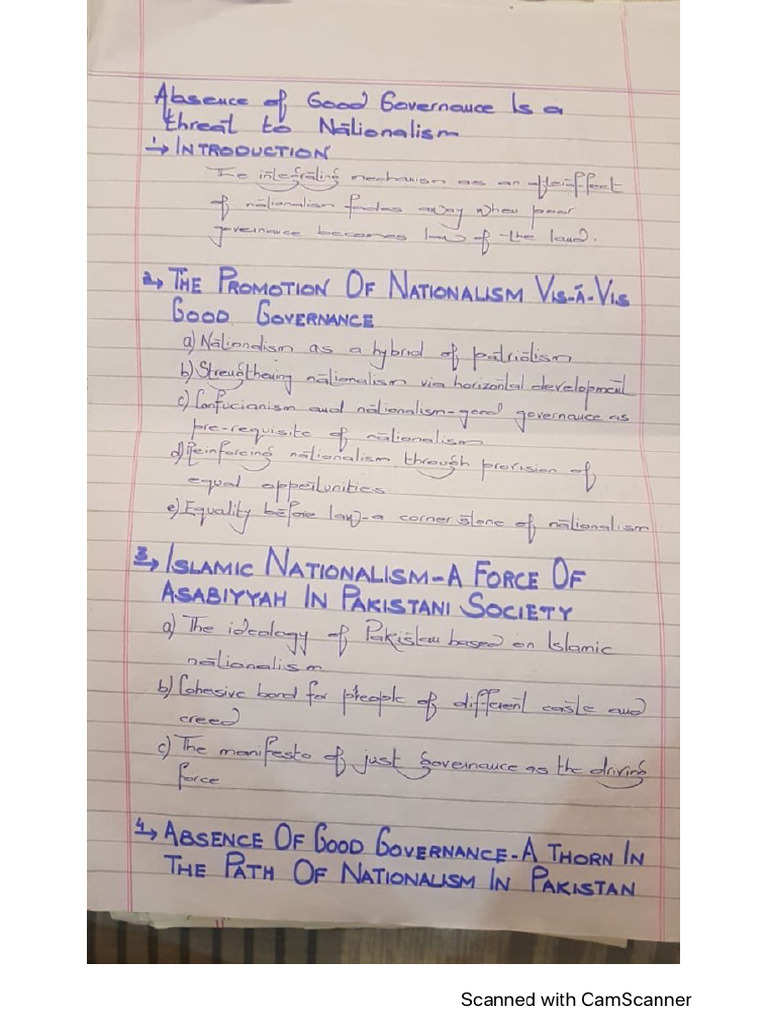 Absence of Good Governance Is a
threat to Nationalism
1→ INTRODUCTION
The integrating mechanism as an aftereffect
of nationalism fades away when poor
governance becomes law of the land.
2→ THE PROMOTION OF NATIONALISM VIS-Ā-VIS
GOOD GOVERNANCE
a) Nationalism as a hybrid of patriotism
b) Strengthening nationalism via horizontal development
c) Confucianism and nationalism-good governance as
pre-requisite of nationalism
d) Reinforcing nationalism through provision of
equal opportunities
e) Equality before law-a corner stone of nationalism
3→ ISLAMIC NATIONALISM-A FORCE OF
ASABIYYAH IN PAKISTANI SOCIETY
a) The ideology of Pakistan based on Islamic
nationalism
b) Cohesive bond for people of different caste and
creed
c) The manifesto of just governance as the driving
force
4→ ABSENCE OF GOOD GOVERNANCE-A THORN IN
THE PATH OF NATIONALISM IN PAKISTAN
Scanned with CamScanner